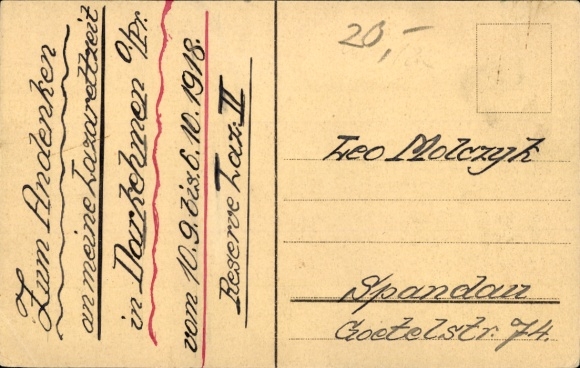 Zum Andenken
an meine Lazarettzeit
in Darkehmen O/Pr.
vom 10.9. bis 6.10.1918.
Reserve Laz. II
20,-
Leo Molczyk
Spandau
Goetelstr. 74.